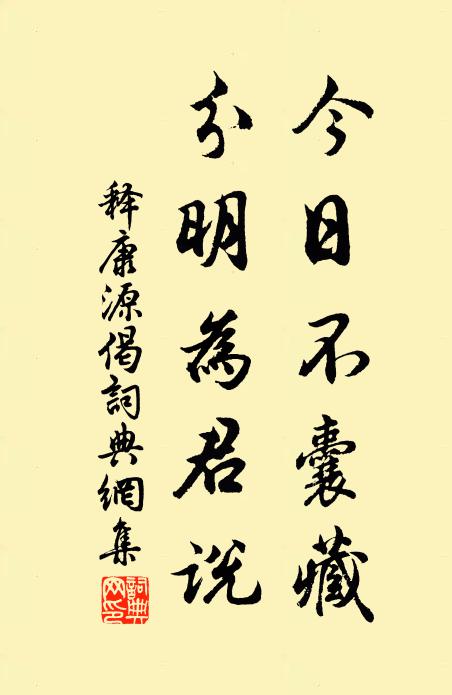 今日不囊藏
分明為君説
释康源偈詞典網集
詞典网印